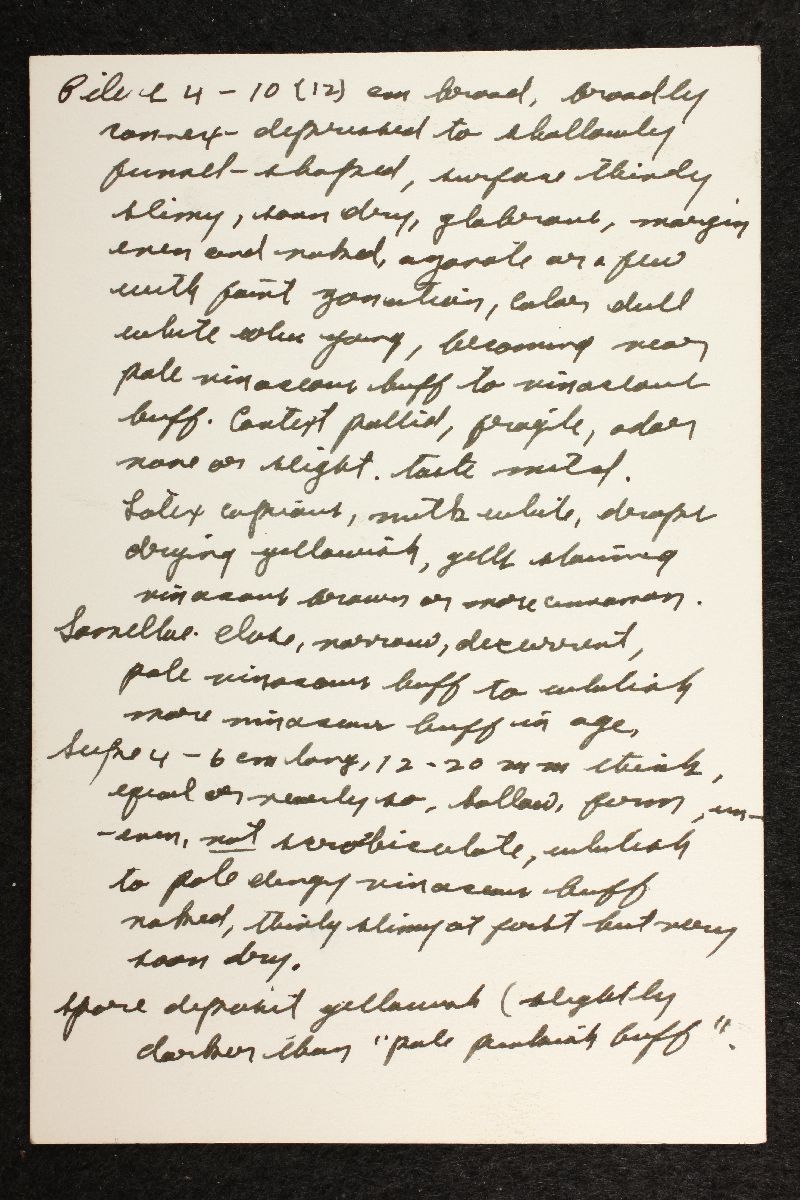 Pileus 4 - 10 (12) cm broad, broadly
convex-depressed to shallowly
funnel-shaped, surface thinly
slimy, soon dry, glabrous, margin
even and naked, azonate or a few
with faint zonation, color dull
white when young, becoming near
pale vinaceous buff to vinaceous
buff. Context pallid, fragile, odor
none or slight. taste
Latex copious, milk white, drops
drying yellowish, gills staining
vinaceous brown or more cinnamon.
Lamellae close, narrow, decurrent,
pale vinaceous buff to whitish
more vinaceous buff in age,
Stipe 4 - 6 cm long, 12-20 mm thick,
equal or nearly so, hollow, firm, un-
-even, not scrobiculate, whitish
to pale dingy vinaceous buff
naked, thinly slimy at first but very
soon dry.
spore deposit yellowish (slightly
darker than "pale pinkish buff".